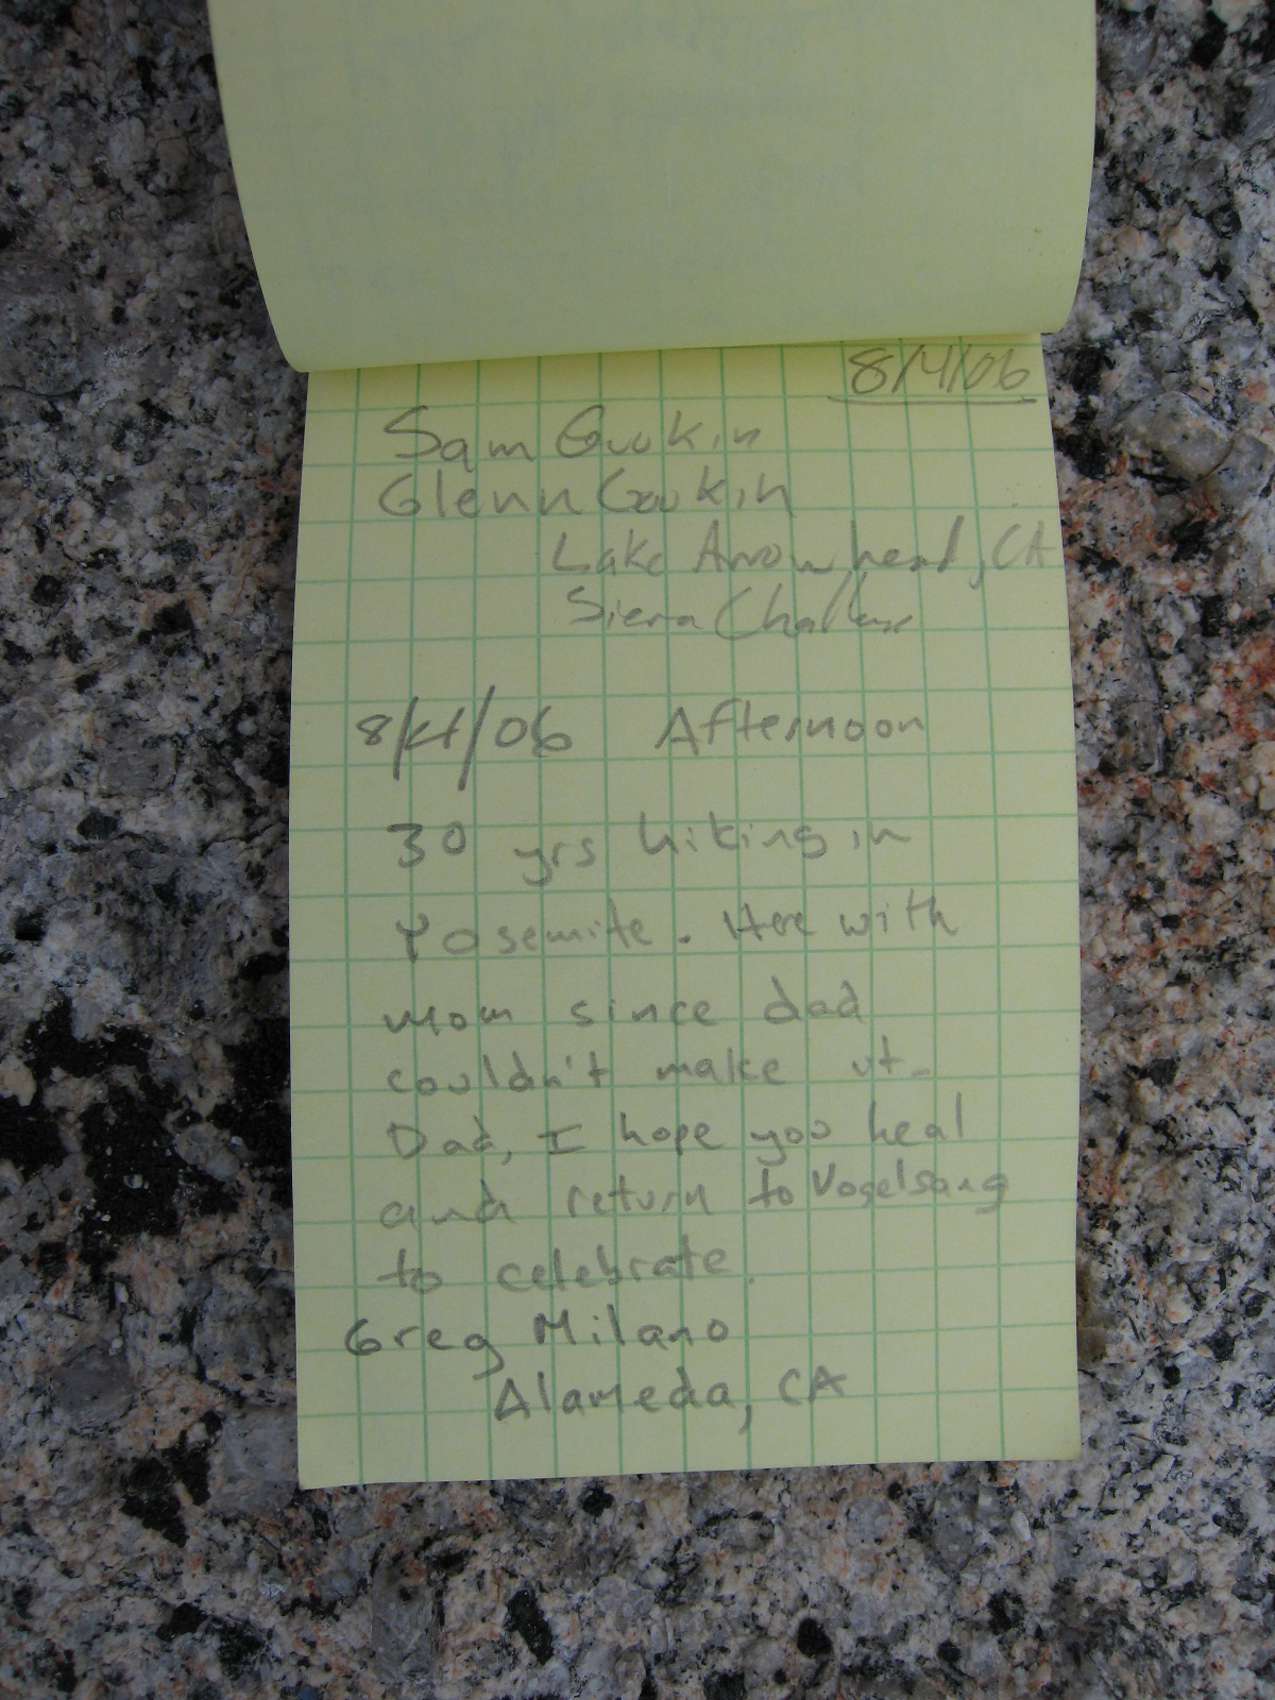 8/4/06
Sam Gookin
Glenn Gookin
Lake Arrowhead, CA
Sierra
8/4/06 Afternoon
30 yrs hiking in
Yosemite. Here with
mom since dad
couldn't make it.
Dad, I hope you heal
and return to Vogelsang
to celebrate.
Greg Milano
Alameda, CA